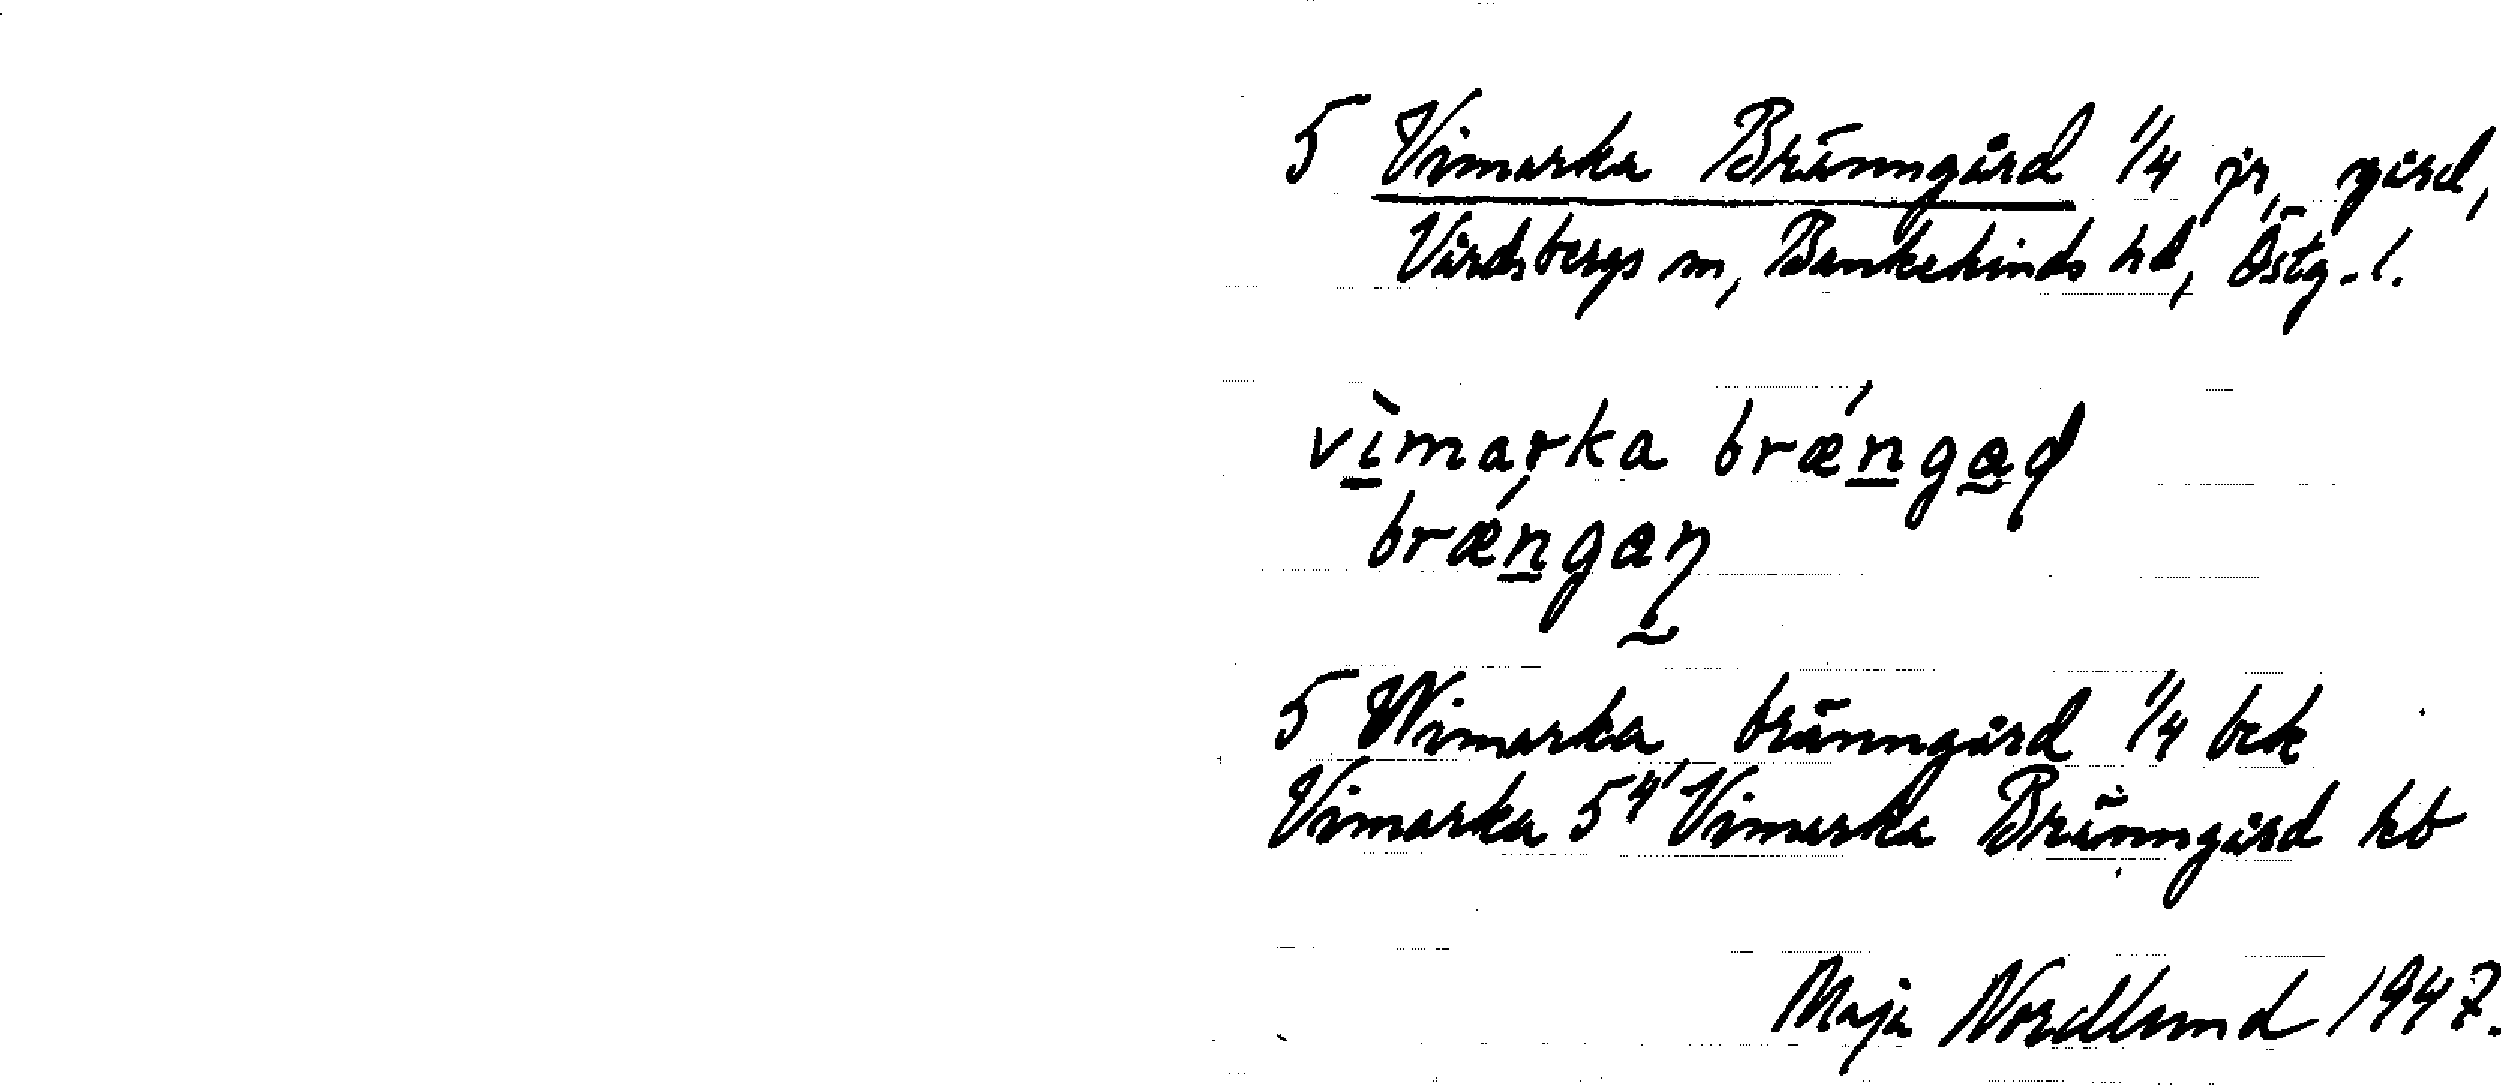 5 Vimarka Bränngård 1/4 jr, gård,
Vårdsbergs sn, Bankekinds hd, Östg. l.
vìmarka brǽngad
brǽngan
5 Wimarka bränngård 1/4 bek
Vimarka 5⁴ Vimarka Bränngård kb
Maja Nordlund 1947.